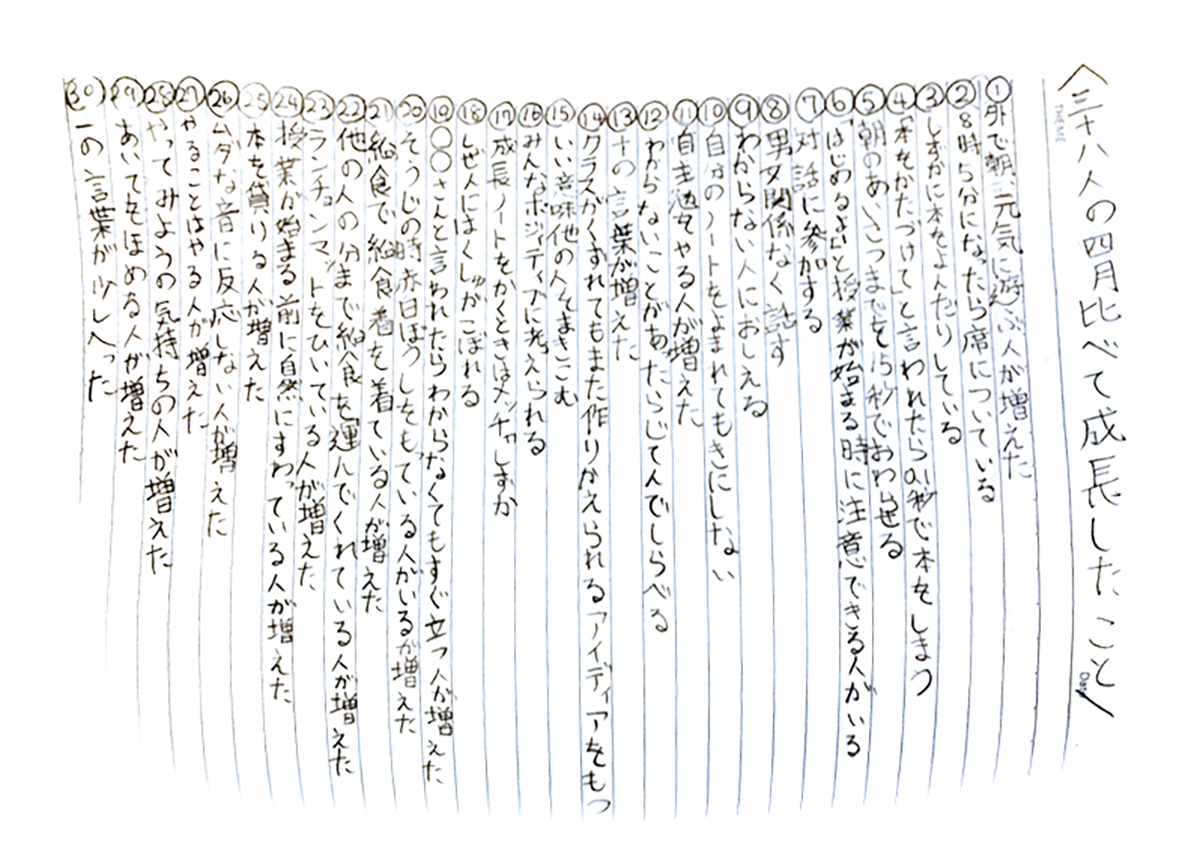 〈三十八人の四月比べて成長したこと〉
THEME
Date
①外で朝、元気に遊ぶ人が増えた
②8時5分になったら席についている
③しずかに本をよんだりしている
④「本をかたづけて」と言われたら0.1秒で本をしまう
⑤朝のあいさつまでを15秒でおわらせる
⑥「はじめるよ」と授業が始まる時に注意できる人がいる
⑦対話に参加する
⑧男女関係なく話す
⑨わからない人におしえる
⑩自分のノートをよまれてもきにしない
⑪自主勉をやる人が増えた
⑫わからないことがあったらじてんでしらべる
⑬+の言葉が増えた
⑭クラスがくずれてもまた作りかえられるアイディアをもつ
⑮いい意味他の人をまきこむ
⑯みんなポジティブに考えられる
⑰成長ノートをかくときはメッチャしずか
⑱しぜんにはくしゅがこぼれる
⑲○○さんと言われたらわからなくてもすぐ立つ人が増えた
⑳そうじの時赤白ぼうしをもっている人がいるが増えた
㉑給食で給食着を着ている人が増えた
㉒他の人の分まで給食を運んでくれている人が増えた
㉓ランチョンマットをひいている人が増えた
㉔授業が始まる前に自然にすわっている人が増えた
㉕本を貸りる人が増えた
㉖ムダな音に反応しない人が増えた
㉗やることはやる人が増えた
㉘やってみようの気持ちの人が増えた
㉙あいてをほめる人が増えた
㉚-の言葉が少しへった